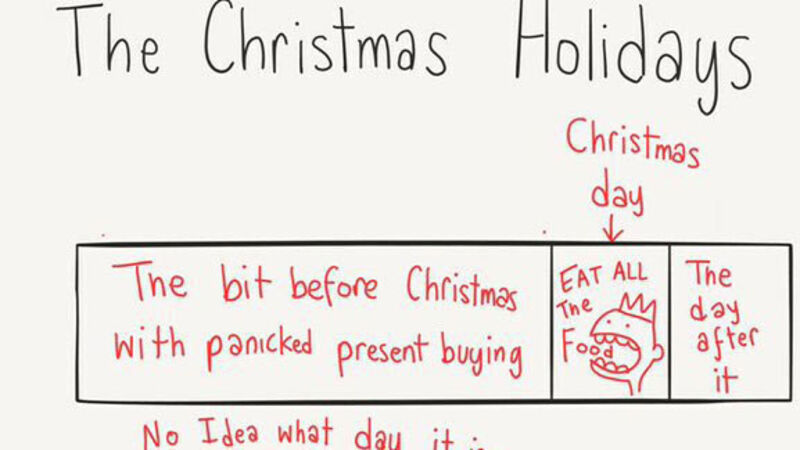 The Christmas Holidays
Christmas
day
The bit before Christmas
with panicked present buying
EAT ALL
The
Food
The
day
after
it
No Idea what day it